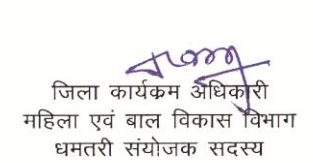 जिला कार्यक्रम अधिकारी
महिला एवं बाल विकास विभाग
धमतरी संयोजक सदस्य